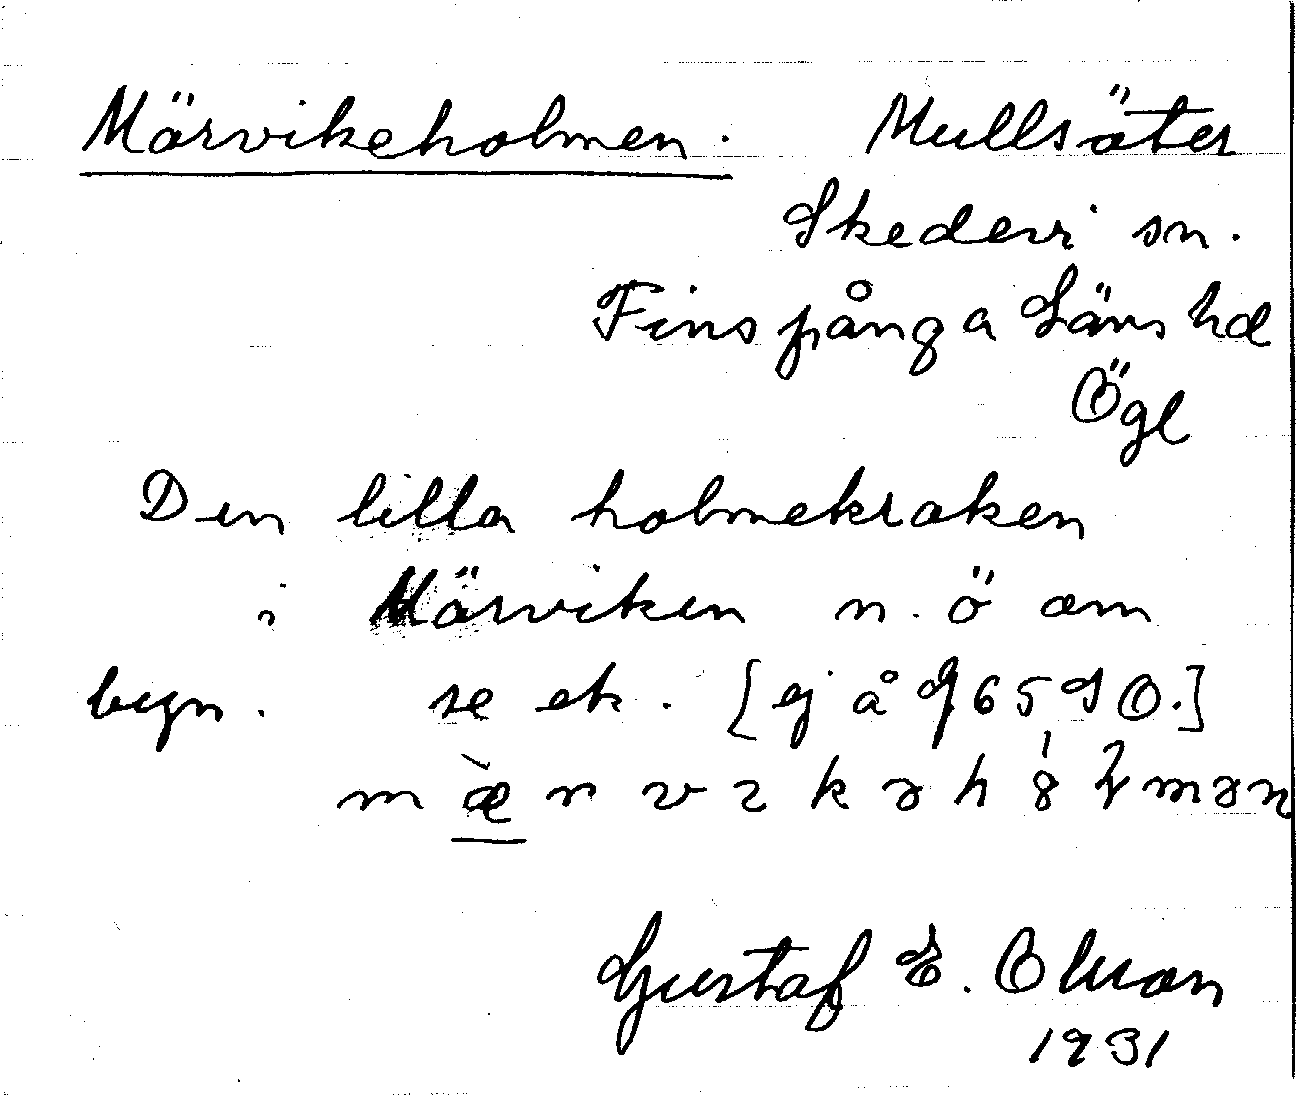 Märvikeholmen. Mullsäter
Skedevi sn.
Finspånga Läns hd
Ögl
Den lilla holmekraken
i Märviken n.ö om
byn. se ek. [ej å 96590.]
Gustaf E. Olsson
1931